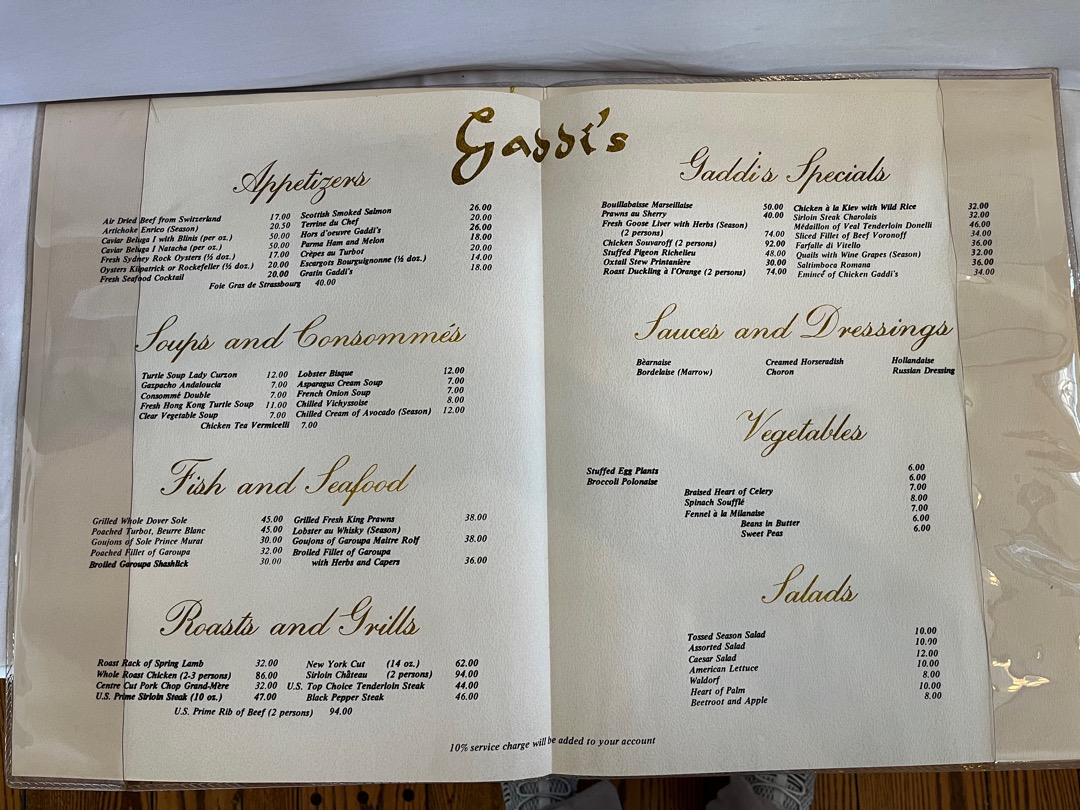 Gaddi's
Appetizers
Air Dried Beef from Switzerland 17.00
Artichoke Enrico (Season) 20.50
Caviar Beluga I with Blinis (per oz.) 50.00
Caviar Beluga I Natacha (per oz.) 50.00
Fresh Sydney Rock Oysters (½ doz.) 17.00
Oysters Kilpatrick or Rockefeller (½ doz.) 20.00
Fresh Seafood Cocktail 20.00
Scottish Smoked Salmon 26.00
Terrine du Chef 20.00
Hors d'oeuvre Gaddi's 26.00
Parma Ham and Melon 18.00
Crêpes au Turbot 20.00
Escargots Bourguignonne (½ doz.) 14.00
Gratin Gaddi's 18.00
Foie Gras de Strassbourg 40.00
Soups and Consommés
Turtle Soup Lady Curzon 12.00
Gazpacho Andaloucia 7.00
Consommé Double 7.00
Fresh Hong Kong Turtle Soup 11.00
Clear Vegetable Soup 7.00
Lobster Bisque 12.00
Asparagus Cream Soup 7.00
French Onion Soup 7.00
Chilled Vichyssoise 8.00
Chilled Cream of Avocado (Season) 12.00
Chicken Tea Vermicelli 7.00
Fish and Seafood
Grilled Whole Dover Sole 45.00
Poached Turbot, Beurre Blanc 45.00
Goujons of Sole Prince Murat 30.00
Poached Fillet of Garoupa 32.00
Broiled Garoupa Shashlick 30.00
Grilled Fresh King Prawns 38.00
Lobster au Whisky (Season)
Goujons of Garoupa Maitre Rolf 38.00
Broiled Fillet of Garoupa
with Herbs and Capers 36.00
Roasts and Grills
Roast Rack of Spring Lamb 32.00
Whole Roast Chicken (2-3 persons) 86.00
Centre Cut Pork Chop Grand-Mère 32.00
U.S. Prime Sirloin Steak (10 oz.) 47.00
New York Cut (14 oz.) 62.00
Sirloin Château (2 persons) 94.00
U.S. Top Choice Tenderloin Steak 44.00
Black Pepper Steak 46.00
U.S. Prime Rib of Beef (2 persons) 94.00
Gaddi's Specials
Bouillabaisse Marseillaise 50.00
Prawns au Sherry 40.00
Fresh Goose Liver with Herbs (Season)
(2 persons) 74.00
Chicken Souvaroff (2 persons) 92.00
Stuffed Pigeon Richelieu 48.00
Oxtail Stew Printanière 30.00
Roast Duckling à l'Orange (2 persons) 74.00
Chicken à la Kiev with Wild Rice 32.00
Sirloin Steak Charolais 32.00
Médaillon of Veal Tenderloin Donelli 46.00
Sliced Fillet of Beef Voronoff 34.00
Farfalle di Vitello 36.00
Quails with Wine Grapes (Season) 32.00
Saltimboca Romana 36.00
Emincé of Chicken Gaddi's 34.00
Sauces and Dressings
Bèarnaise
Bordelaise (Marrow)
Creamed Horseradish
Choron
Hollandaise
Russian Dressing
Vegetables
Stuffed Egg Plants 6.00
Broccoli Polonaise 6.00
Braised Heart of Celery 7.00
Spinach Soufflé 8.00
Fennel à la Milanaise 7.00
Beans in Butter 6.00
Sweet Peas 6.00
Salads
Tossed Season Salad 10.00
Assorted Salad 10.90
Caesar Salad 12.00
American Lettuce 10.00
Waldorf 8.00
Heart of Palm 10.00
Beetroot and Apple 8.00
10% service charge will be added to your account